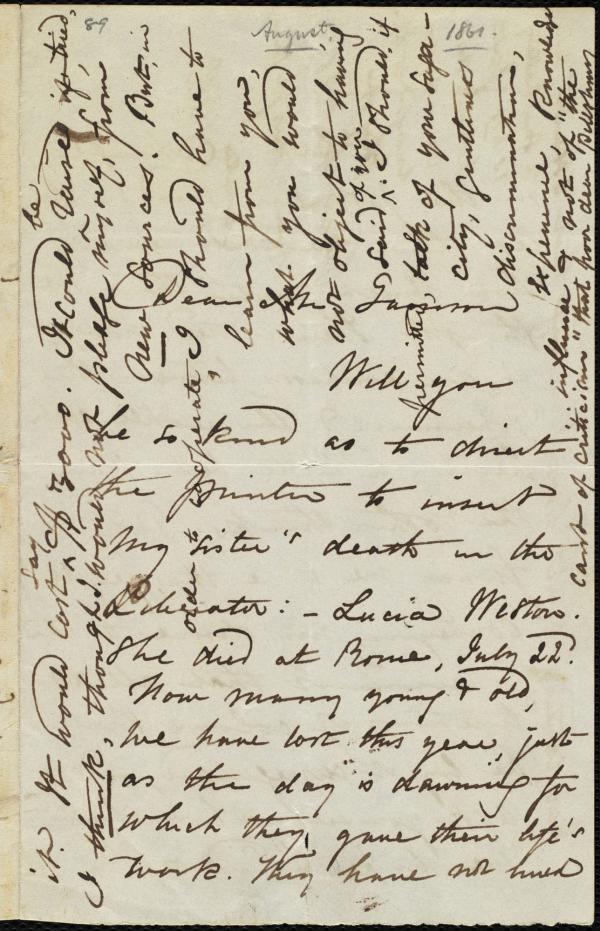 89
August.
1861.
Dear Mr Garrison
Will you
be so kind as to direct
the printer to insert
my sister's death in the
Liberator: - Lucia Weston.
She died at Rome, July 22d.
How many young & old,
we have lost this year, just
as the day is dawning for
which they gave their life's
work. They have not lived
it. It would cost say $ 3000. It could be raised if tried,
I think, though I would not pledge myself, from
new sources. But, in
order to operate, I should have to
learn from you,
what you would, permitted,
not object to having
said of you. I should, if
talk of your saga-
city, gentleness
discrimination,
experience, knowledge
influence & not of "the
cant of criticism" that poor dear Pillsbury